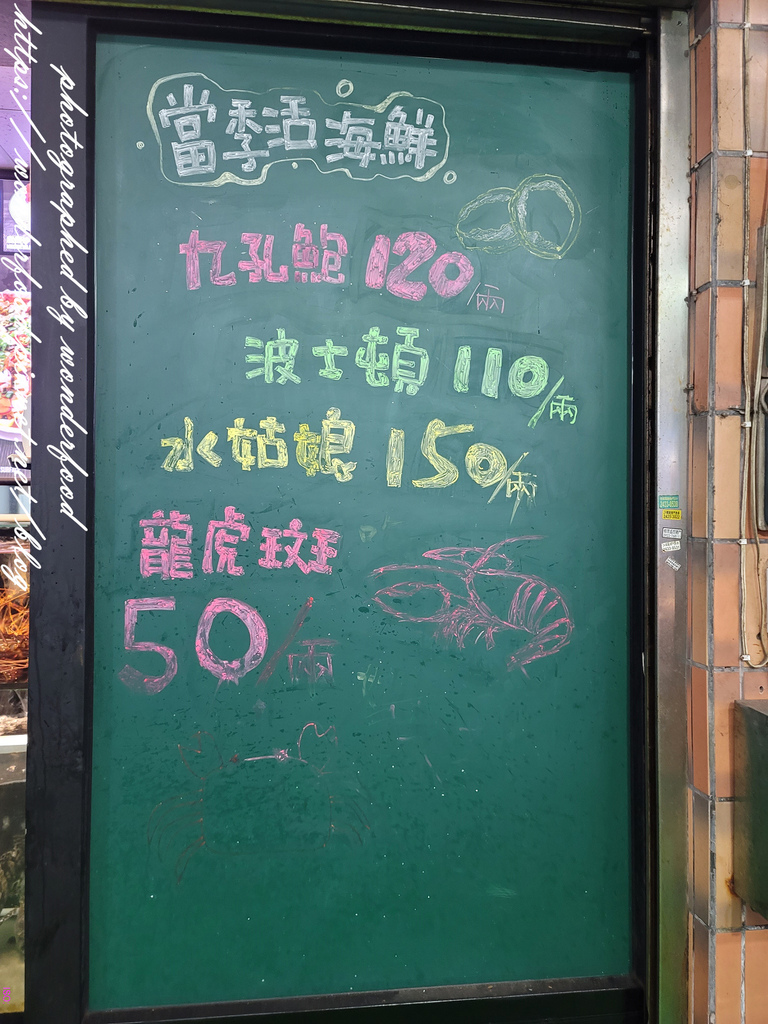 當季活海鮮
九孔鮑 120/兩
波士頓 110/兩
水姑娘 150/兩
龍虎斑
50/兩
photographed by wonderfood